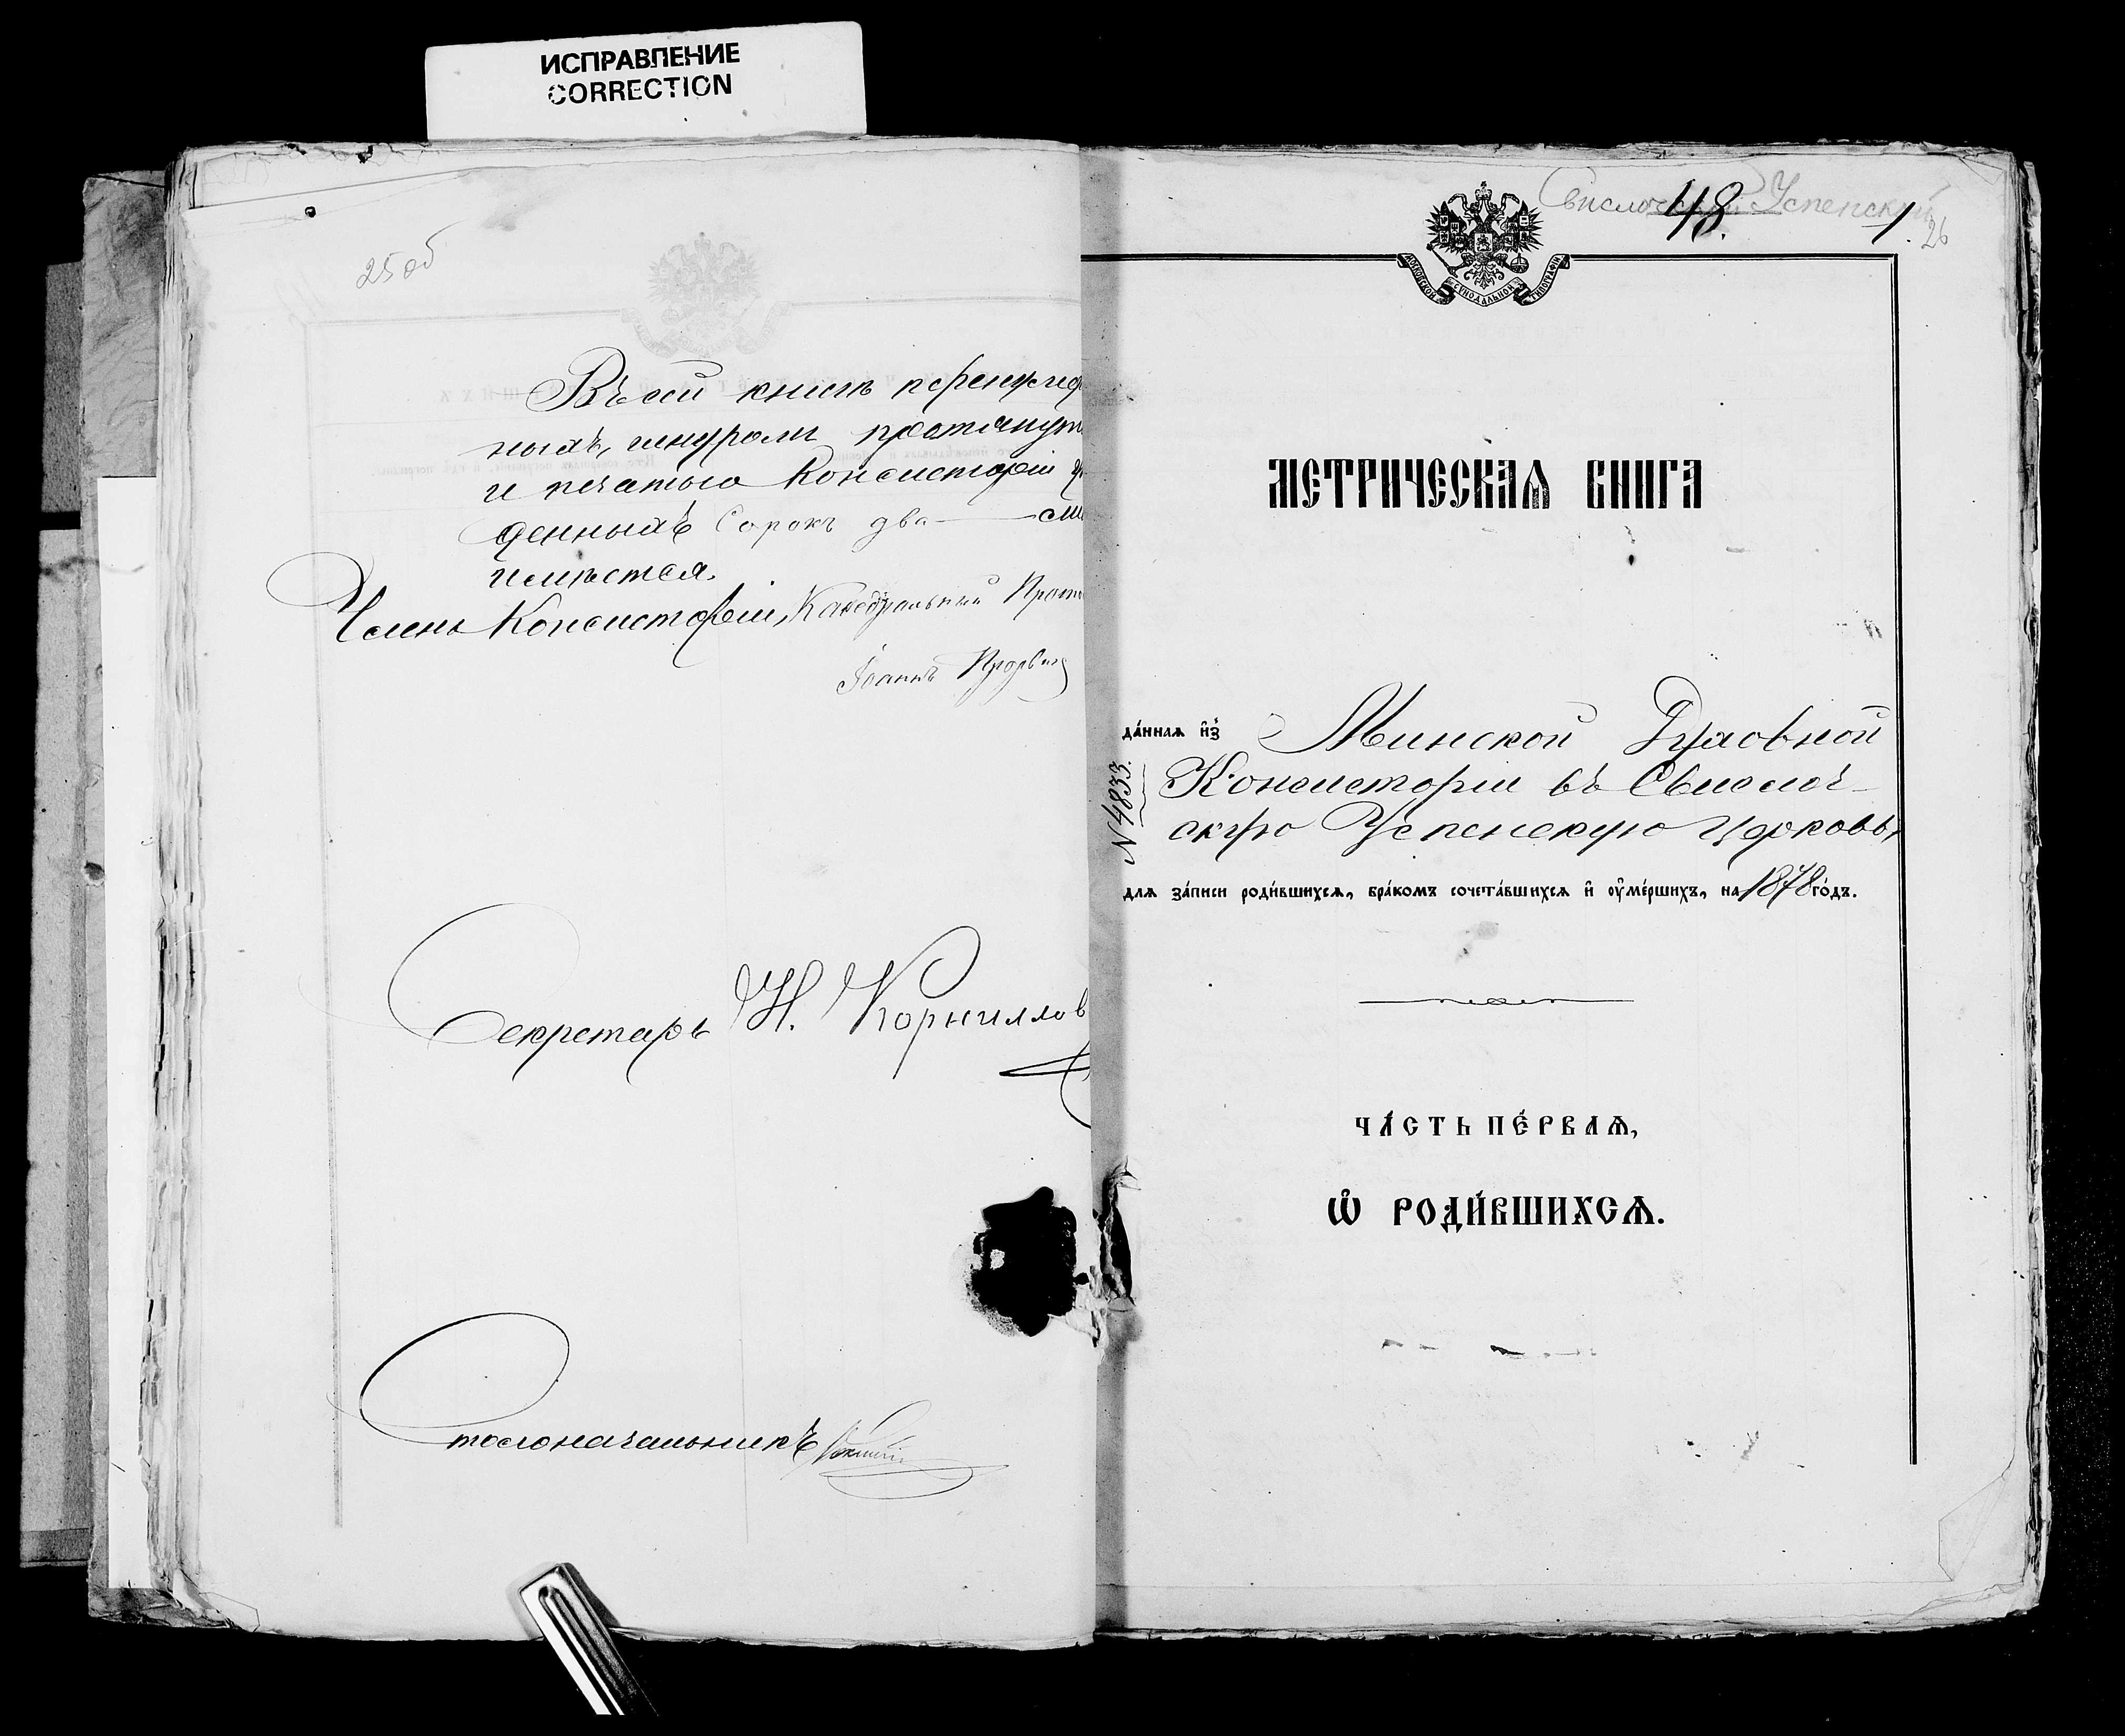 ИСПРАВЛЕНИЕ
CORRECTION
25 об
Въ сей книгѣ перенумеро
ныхъ, шнуромъ протянут
и печатью Консисторіи
денныхъ Сорокъ два — ли
имѣется.
Членъ Консисторіи, Каѳедральный Прот
Іоаннъ
Секретарь Н. Корниллов
Столоначальникъ
Свислочский Успенский
48.
1.
26
МОСКОВСКОЙ СѴНОДАЛЬНОЙ ТИПОГРАФІИ
МЕТРИЧЕСКАѦ КНИГА
да́ннаѧ и҆з̾ Минской Духовной
N 4833.
Консисторіи въ Свислоч-
скую Успенскую Церковь,
длѧ за́писи роди́вшихсѧ, бра́комъ сочета́вшихсѧ и҆ ᲂу҆ме́ршихъ, на 1878 го́дъ.
ЧА́СТЬ ПЕ́РВАѦ,
Ѽ РОДИ́ВШИХСѦ.